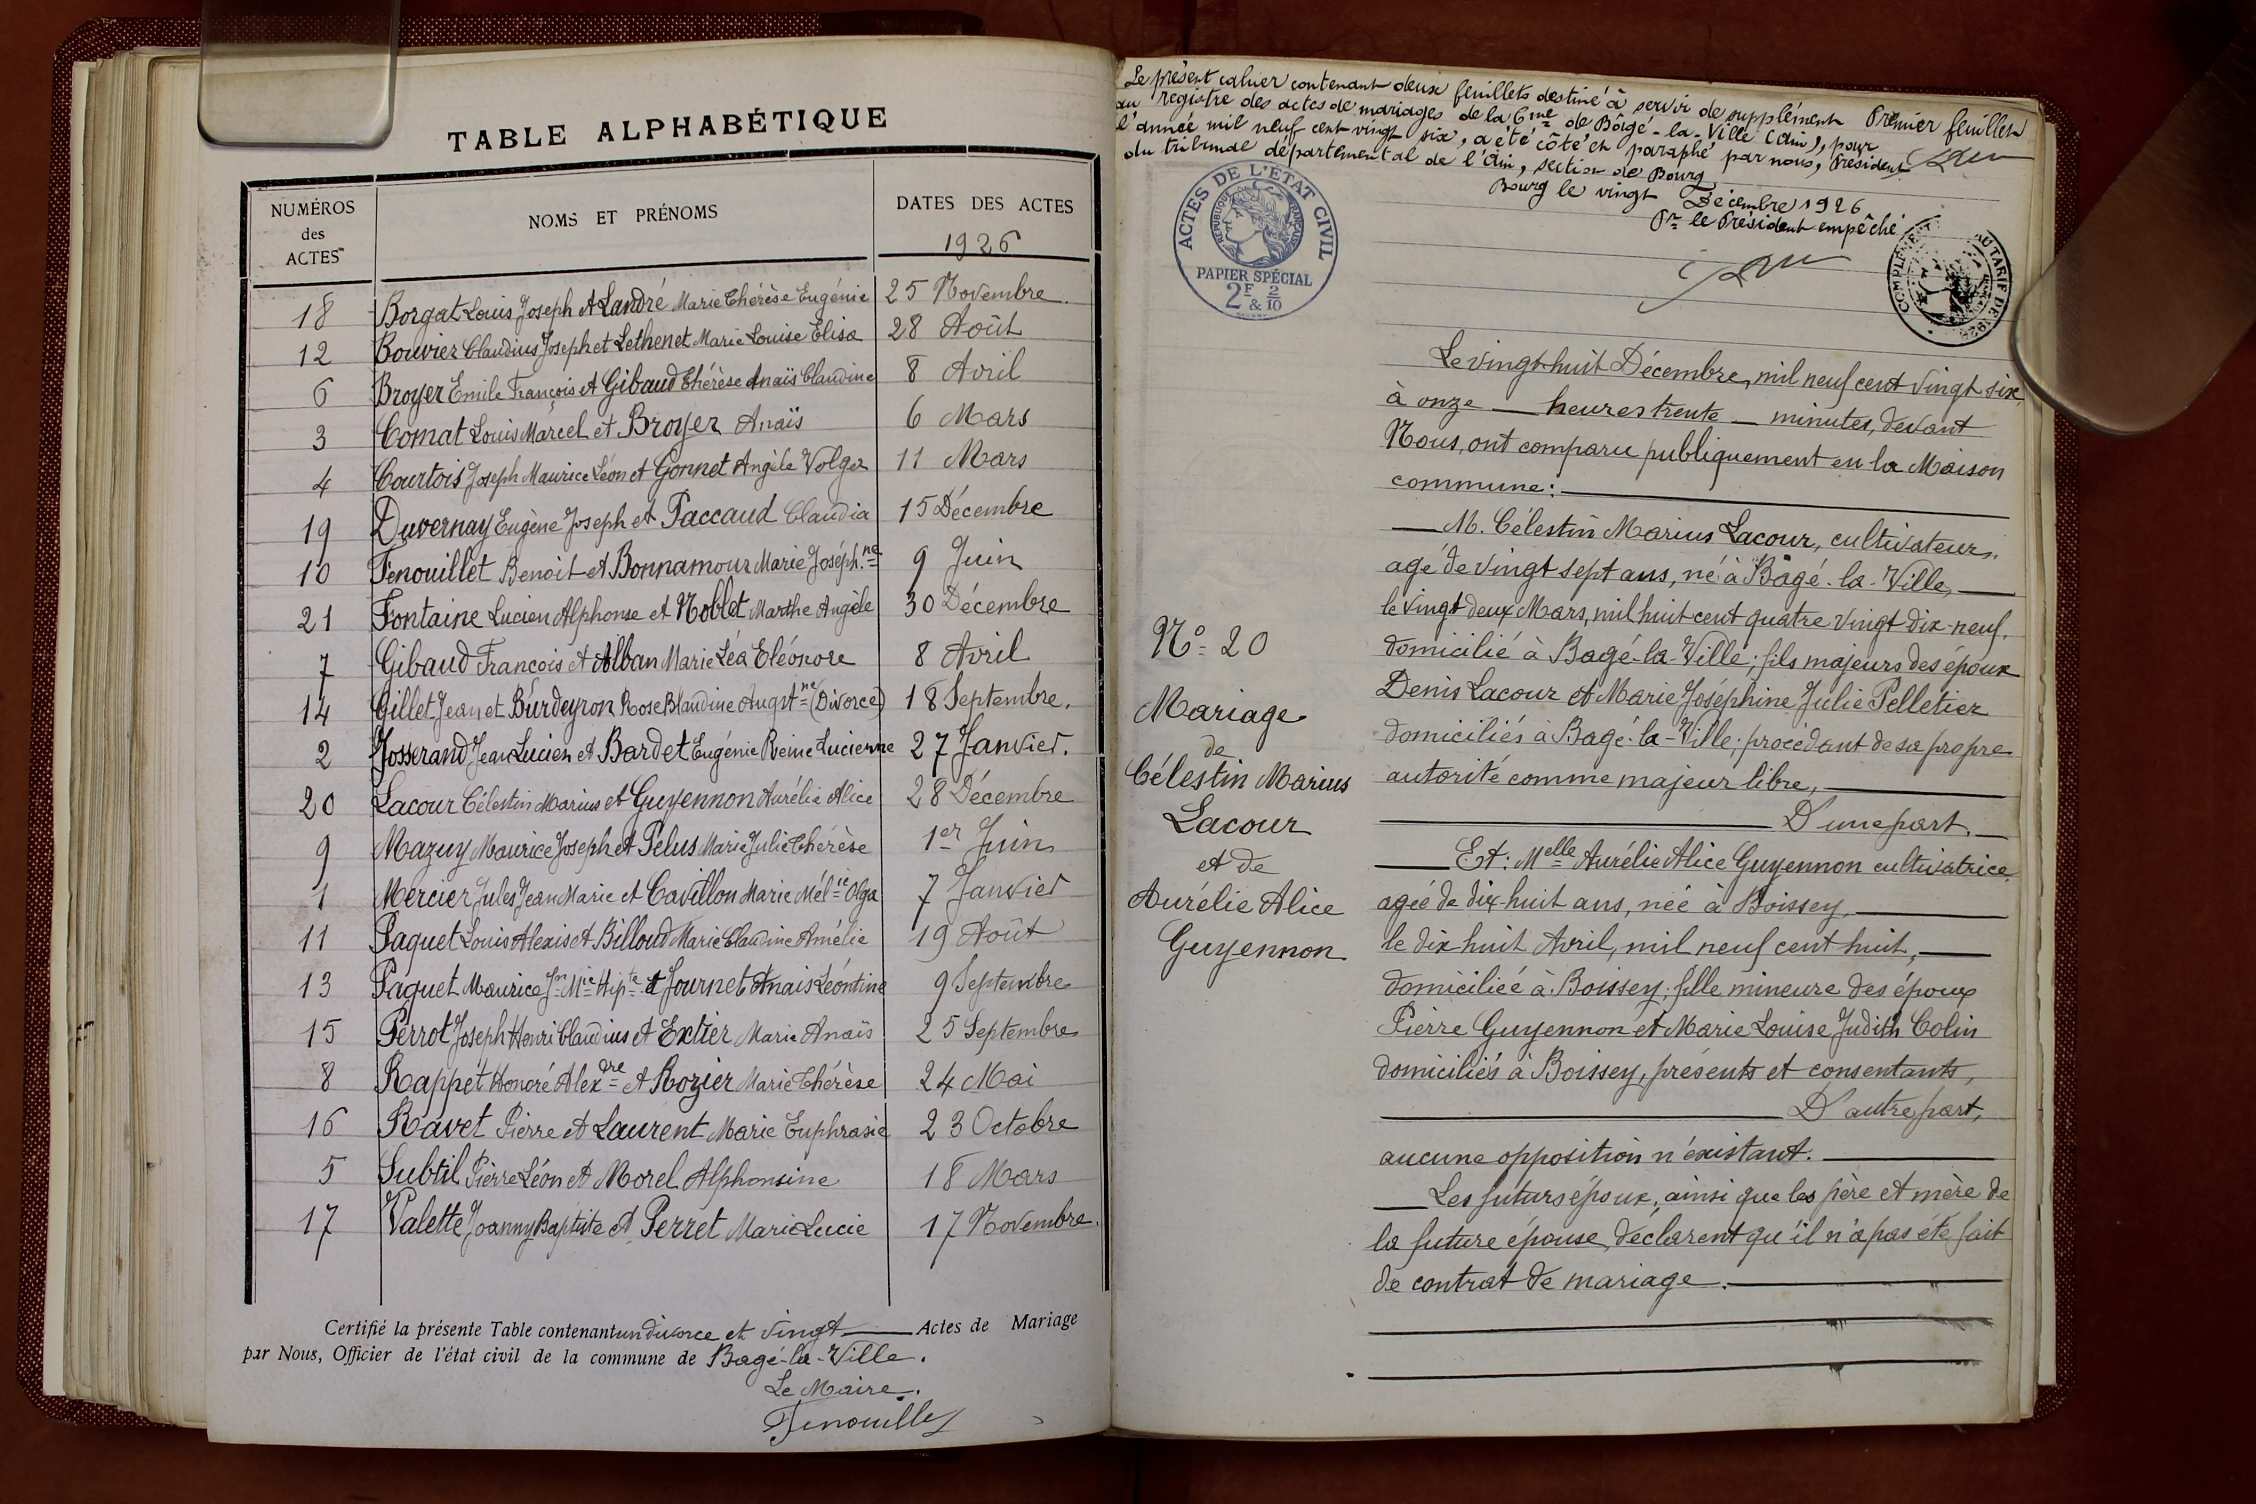 TABLE ALPHABÉTIQUE
NUMÉROS des ACTES
NOMS ET PRÉNOMS
DATES DES ACTES
1926
18 Borgat Louis Joseph et Landré Marie Thérèse Eugénie 25 Novembre.
12 Bouvier Claudius Joseph et Lethenet Marie Louise Elisa 28 Août
6 Broyer Emile François et Gibaud Thérèse Anaïs Claudine 8 Avril
3 Comat Louis Marcel et Broyer Anaïs 6 Mars
4 Courtois Joseph Maurice Léon et Gonnet Angèle Volger 11 Mars
19 Duvernay Eugène Joseph et Paccaud Claudia 15 Décembre
10 Fenouillet Benoit et Bonnamour Marie Joséph.ne 9 Juin
21 Fontaine Lucien Alphonse et Noblet Marthe Angèle 30 Décembre
7 Gibaud François et Alban Marie Léa Eléonore 8 Avril
14 Gillet Jean et Burdeyron Rose Blandine Augst.ne (Divorce) 18 Septembre.
2 Josserand Jean Lucien et Bardet Eugénie Reine Lucienne 27 Janvier.
20 Lacour Célestin Marius et Guyennon Aurélie Alice 28 Décembre
9 Mazuy Maurice Joseph et Pelus Marie Julie Thérèse 1er Juin
1 Mercier Jules Jean Marie et Cavillon Marie Mél.ie Olga 7 Janvier
11 Paquet Louis Alexis et Billoud Marie Claudine Amélie 19 Août
13 Paquet Maurice Jn Mie Hipte et Journet Anais Léontine 9 Septembre
15 Perrot Joseph Henri Claudius et Extier Marie Anaïs 25 Septembre
8 Rappet Honoré Alexdre et Rozier Marie Thérèse 24 Mai
16 Ravet Pierre et Laurent Marie Euphrasie 23 Octobre
5 Subtil Pierre Léon et Morel Alphonsine 18 Mars
17 Valette Joanny Baptiste et Perret Marie Lucie 17 Novembre.
Certifié la présente Table contenant un divorce et vingt Actes de Mariage
par Nous, Officier de l'état civil de la commune de Bagé-la-Ville.
Le Maire.
Fenouillet
Le présent cahier contenant deux feuillets destiné à servir de supplément Premier feuillet
au registre des actes de mariages de la Cme de Bâgé-la-Ville (Ain), pour
l'année mil neuf cent vingt six, a été côté et paraphé par nous, Président
du tribunal départemental de l'Ain, section de Bourg
Bourg le vingt Décembre 1926
Pr le Président empêché
ACTES DE L'ETAT CIVIL
REPUBLIQUE FRANÇAISE
PAPIER SPÉCIAL
2F 2/10
&
COMPLEMENT AU TARIF DE 1926
Le vingt-huit Décembre, mil neuf cent vingt six
à onze heures trente minutes, devant
Nous, ont comparu publiquement en la Maison
commune:
M. Célestin Marius Lacour, cultivateur,
agé de vingt sept ans, né à Bâgé-la-Ville,
le vingt deux Mars, mil huit cent quatre vingt dix-neuf,
domicilié à Bagé-la-Ville; fils majeurs des époux
Denis Lacour et Marie Joséphine Julie Pelletier
domiciliés à Bagé-la-Ville; procédant de sa propre
autorité comme majeur libre,
D'une part.
Et: Melle Aurélie Alice Guyennon cultivatrice,
agée de dix-huit ans, née à Boissey,
le dix huit Avril, mil neuf cent huit,
domiciliée à Boissey; fille mineure des époux
Pierre Guyennon et Marie Louise Judith Colin
domiciliés à Boissey, présents et consentants,
D'autre part,
aucune opposition n'éxistant.
Les futurs époux, ainsi que les père et mère de
la future épouse, déclarent qu'il n'a pas été fait
de contrat de mariage.
No 20
Mariage
de
Célestin Marius
Lacour
et de
Aurélie Alice
Guyennon